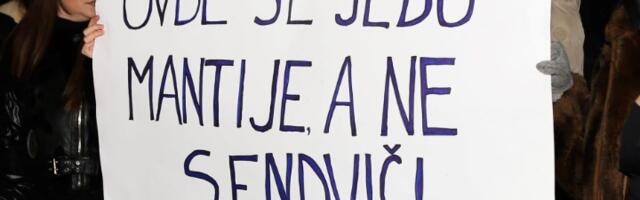 OVDE SE JEDU
MANTIJE, A NE
SENDVIČI